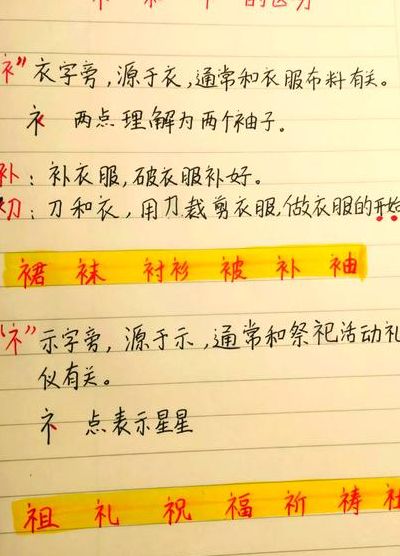 礻 和 衤 的区分
"衤"衣字旁,源于衣,通常和衣服布料有关。
衤 两点理解为两个袖子。
补:补衣服,破衣服补好。
初:刀和衣,用刀裁剪衣服,做衣服的开始
裙 袜 衬衫 被 补 袖
"礻"示字旁,源于示,通常和祭祀活动礼
仪有关。
礻 点表示星星
祖 礼 祝 福 祈 祷 社